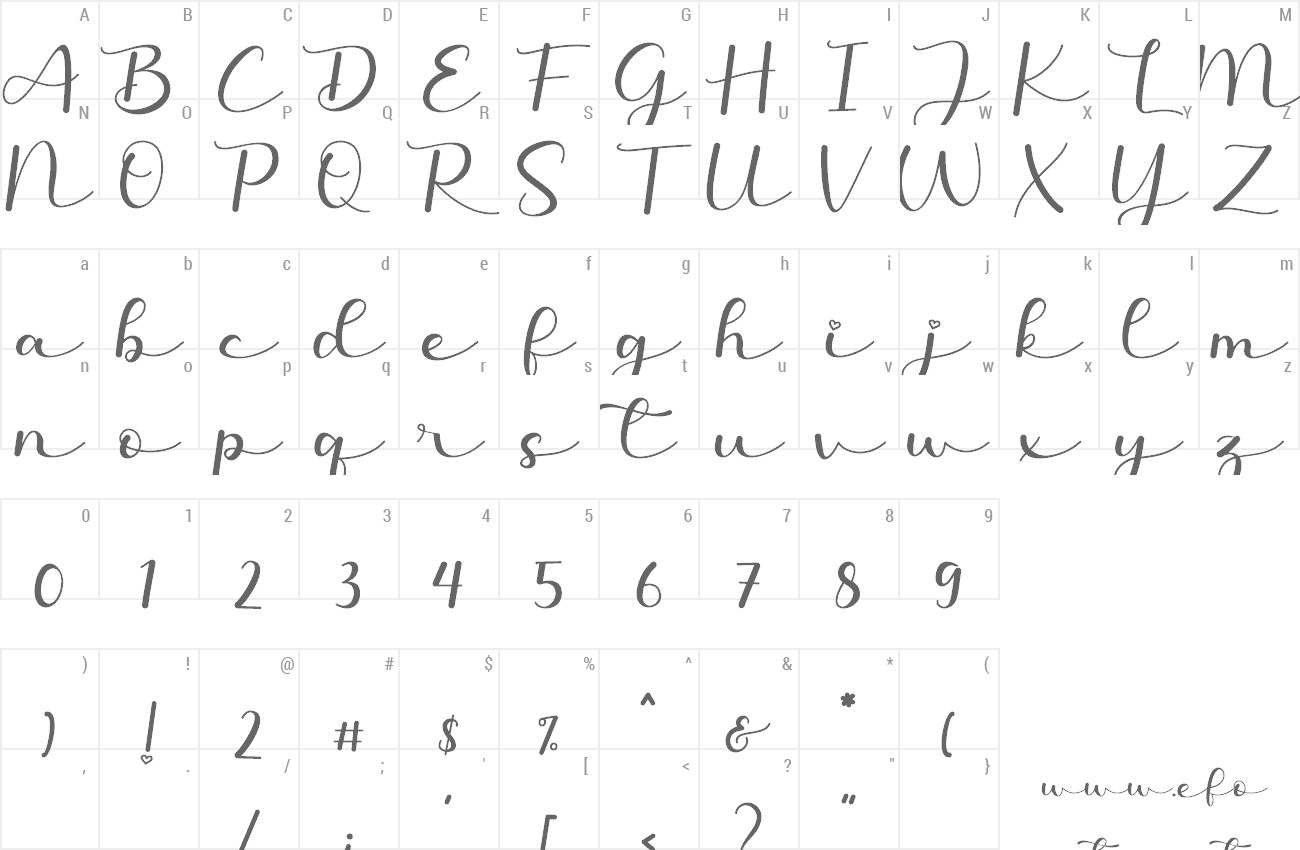 A B C D E F G H I J K L M
A B C D E F G H I J K L M
N O P Q R S T U V W X Y Z
N O P Q R S T U V W X Y Z
a b c d e f g h i j k l m
a b c d e f g h i j k l m
n o p q r s t u v w x y z
n o p q r s t u v w x y z
0 1 2 3 4 5 6 7 8 9
0 1 2 3 4 5 6 7 8 9
) ! @ # $ % ^ & * (
) ! 2 # $ % ^ & * (
, . / ; ' [ < ? " }
/ ; ' [ < ? "
www.efo